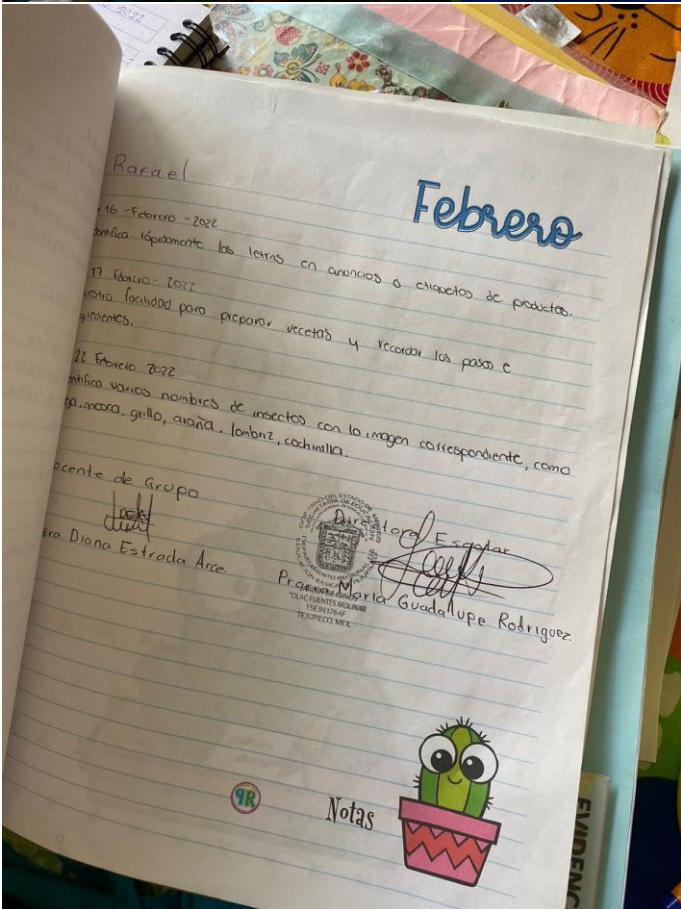 2022
Rafael
Febrero
16 - Febrero - 2022
entifica rápidamente las letras en anuncios o etiquetas de productos.
17 Febrero - 2022
uestra facilidad para preparar recetas y recordar los pasos e
gredientes.
22 Febrero 2022
entifica varios nombres de insectos con la imagen correspondiente, como
mosca, grillo, araña, lombriz, cochinilla.
ocente de Grupo
Directora Escolar
tra. Diana Estrada Arce.
Profra. María Guadalupe Rodriguez.
"OLAC FUENTES MOLINAR"
15EJN3764F
TEJUPILCO, MEX.
Notas
EVIDENC